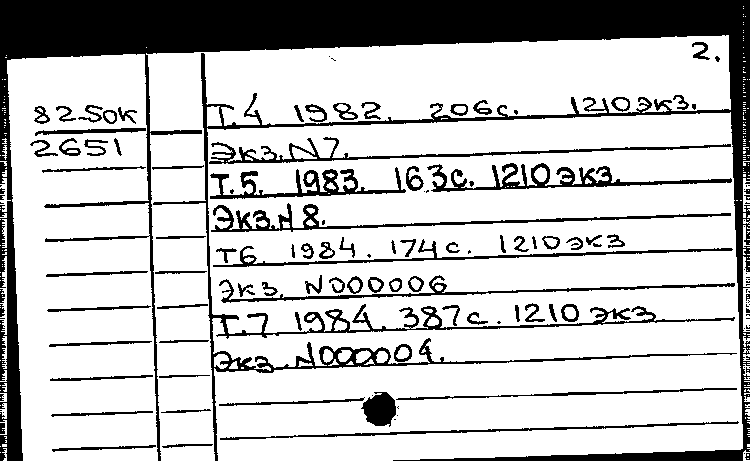 2.
82-50к
2651
Т.4. 1982. 206с. 1210экз.
Экз.N7.
Т.5. 1983. 163с. 1210экз.
Экз.N8.
Т6. 1984. 174с. 1210экз
Экз. N000006
Т.7 1984. 387с. 1210 экз
Экз. N000004.